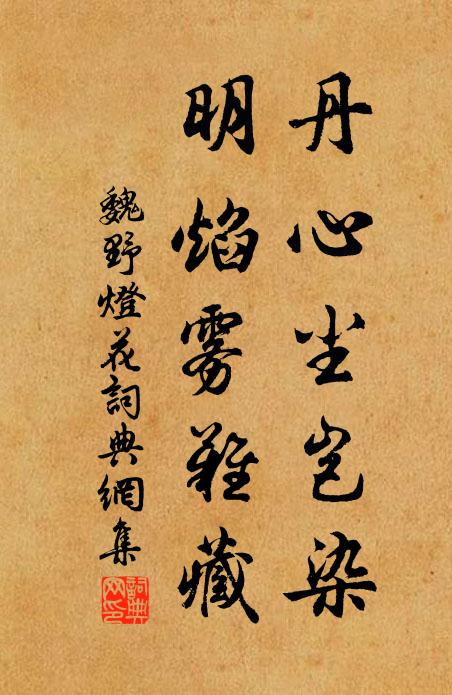 丹心尘岂染
明焰雾难藏
魏野燈花詞典網集
詞典
网印